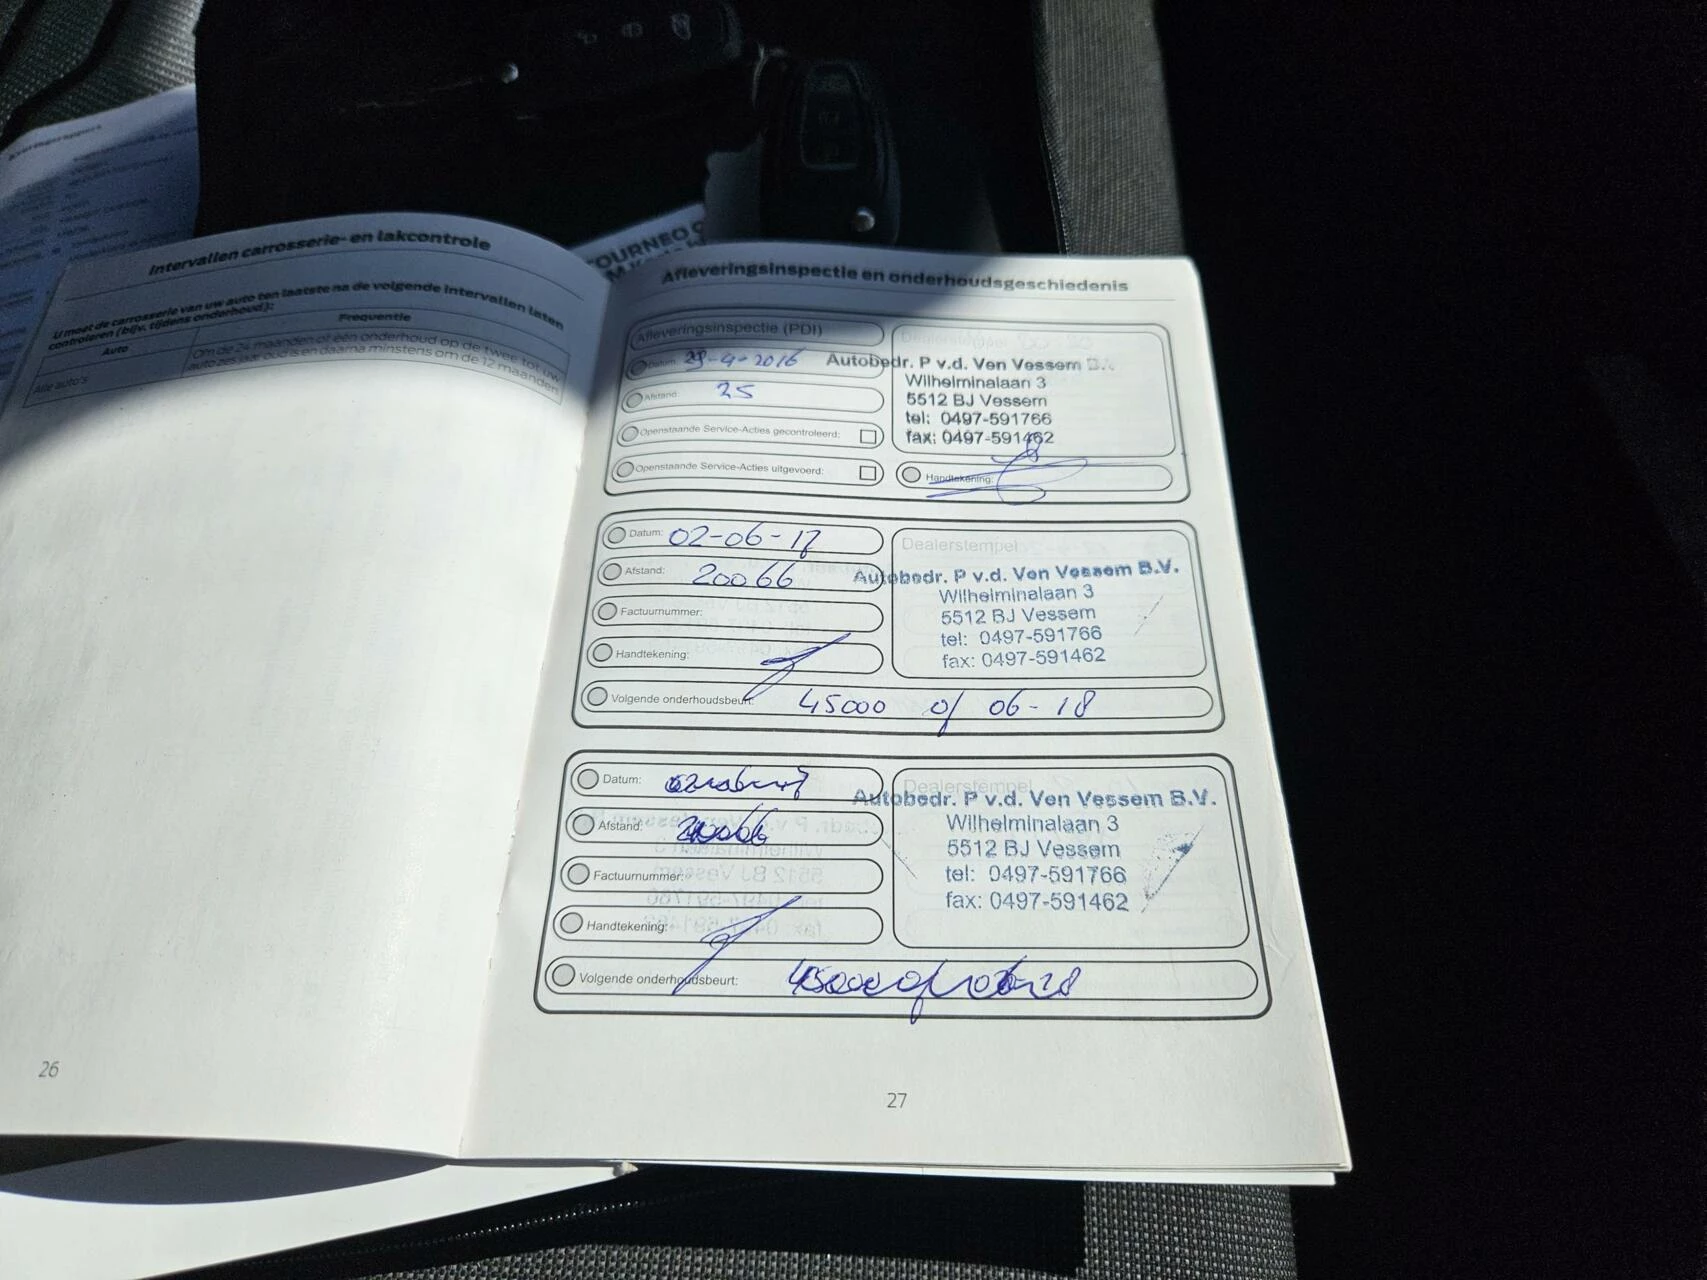 Keuringsrapport
TOURNEO C
Intervallen carrosserie- en lakcontrole
U moet de carrosserie van uw auto ten laatste na de volgende intervallen laten
controleren (bijv. tijdens onderhoud):
Auto
Frequentie
Alle auto's
Om de 24 maanden of één onderhoud op de twee tot uw
auto zes jaar oud is en daarna minstens om de 12 maanden
26
Afleveringsinspectie en onderhoudsgeschiedenis
Afleveringsinspectie (PDI)
Datum: 29-4-2016
Afstand: 25
Openstaande Service-Acties gecontroleerd:
Openstaande Service-Acties uitgevoerd:
Dealerstempel
Autobedr. P v.d. Ven Vessem B.V.
Wilhelminalaan 3
5512 BJ Vessem
tel: 0497-591766
fax: 0497-591462
Handtekening:
Datum: 02-06-17
Afstand: 20066
Factuurnummer:
Handtekening:
Volgende onderhoudsbeurt: 45000 of 06-18
Dealerstempel
Autobedr. P v.d. Ven Vessem B.V.
Wilhelminalaan 3
5512 BJ Vessem
tel: 0497-591766
fax: 0497-591462
Datum:
Afstand:
Factuurnummer:
Handtekening:
Volgende onderhoudsbeurt:
Dealerstempel
Autobedr. P v.d. Ven Vessem B.V.
Wilhelminalaan 3
5512 BJ Vessem
tel: 0497-591766
fax: 0497-591462
27